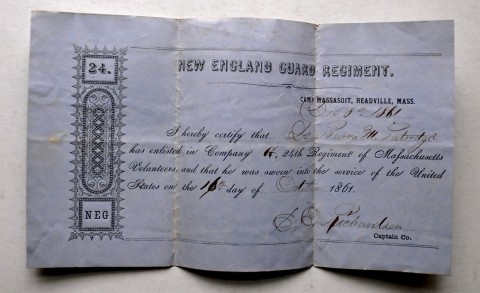 24.
NEW ENGLAND GUARD REGIMENT.
CAMP MASSASOIT, READVILLE, MASS.
1861
I hereby certify that
has enlisted in Company 24th Regiment of Massachusetts
Volunteers, and that he was sworn into the service of the United
States on the 16th day of Octber 1861.
Richardson
Captain Co.
NEG